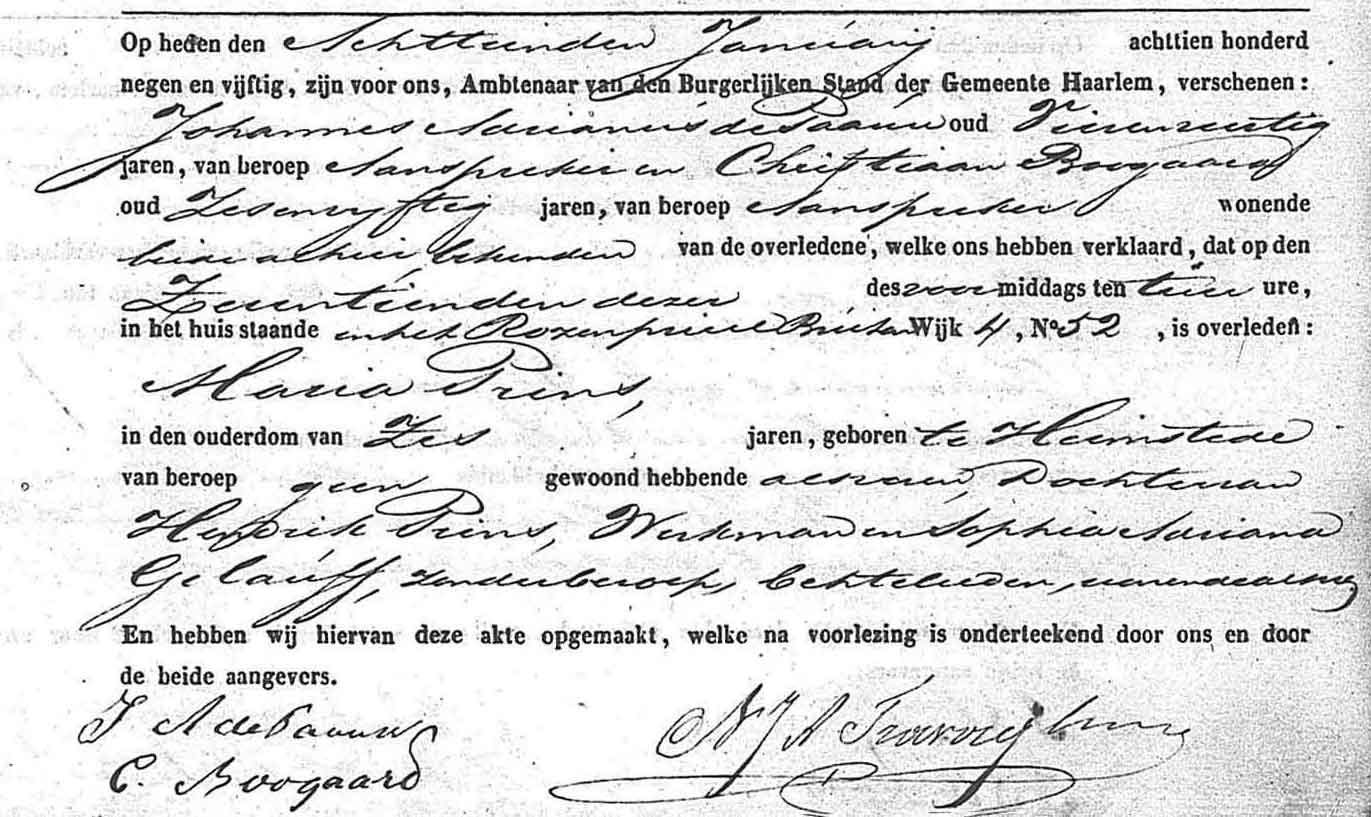 Op heden den Achttienden Januarij achttien honderd
negen en vijftig, zijn voor ons, Ambtenaar van den Burgerlijken Stand der Gemeente Haarlem, verschenen:
Johannes Adrianus de Paauw oud Vierenzestig
jaren, van beroep Aanspreker en Christiaan Boogaard
oud Zesenvyftig jaren, van beroep Aanspreker wonende
beide alhier, bekenden van de overledene, welke ons hebben verklaard, dat op den
Zeventienden dezer des voormiddags ten tien ure,
in het huis staande in het Rozenprieel Buiten Wijk 4, No 52, is overleden:
Maria Prins,
in den ouderdom van Zes jaren, geboren te Heemstede
van beroep geen gewoond hebbende aldaar, Dochter van
Hendrik Prins, Werkman en Sophia Adriana
Gelauff, zonder beroep, Echtelieden, wonende aldaar
En hebben wij hiervan deze akte opgemaakt, welke na voorlezing is onderteekend door ons en door
de beide aangevers.
J A de Paauw
N J A
C. Boogaard